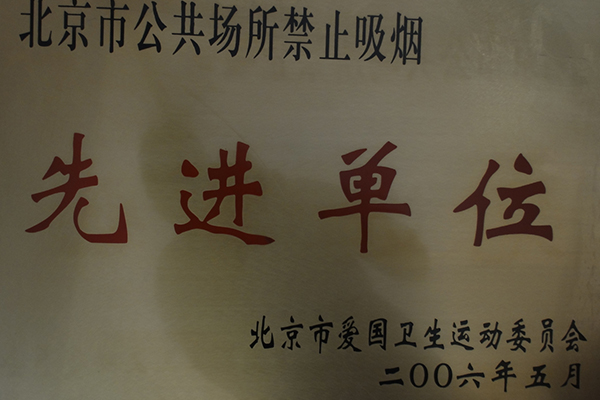 北京市公共场所禁止吸烟
先进单位
北京市爱国卫生运动委员会
二00六年五月